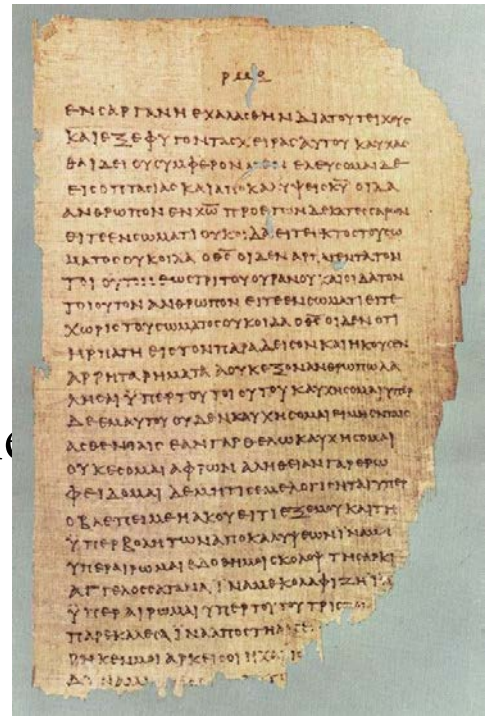 ΕΝϹΑΡΓΑΝΗΕΧΑΛΑϹΘΗΝΔΙΑΤΟΥΤΕΙΧΟΥϹ
ΚΑΙΕΞΕΦΥΓΟΝΤΑϹΧΕΙΡΑϹΑΥΤΟΥΚΑΥΧΑϹ
ΘΑΙΔΕΙΟΥϹΥΜΦΕΡΟΝ ΕΛΕΥϹΟΜΑΙΔΕ
ΕΙϹΟΠΤΑϹΙΑϹΚΑΙΑΠΟΚΑΛΥΨΕΙϹΚ̅Υ̅ΟΙΔΑ
ΑΝΘΡΩΠΟΝΕΝΧ̅Ω̅ΠΡΟΕΤΩΝΔΕΚΑΤΕϹϹΑΡΩΝ
ΕΙΤΕΕΝϹΩΜΑΤΙΟΥΚΟΙΔΑΕΙΤΕΕΚΤΟϹΤΟΥϹΩ
ΜΑΤΟϹΟΥΚΟΙΔΑΟΘ̅Ϲ̅ΟΙΔΕΝΑΡΠΑΓΕΝΤΑΤΟΝ
ΤΟΙΟΥΤΟΝΕΩϹΤΡΙΤΟΥΟΥΡΑΝΟΥΚΑΙΟΙΔΑΤΟΝ
ΤΟΙΟΥΤΟΝΑΝΘΡΩΠΟΝΕΙΤΕΕΝϹΩΜΑΤΙΕΙΤΕ
ΧΩΡΙϹΤΟΥϹΩΜΑΤΟϹΟΥΚΟΙΔΑΟΘ̅Ϲ̅ΟΙΔΕΝΟΤΙ
ΗΡΠΑΓΗΕΙϹΤΟΝΠΑΡΑΔΕΙϹΟΝΚΑΙΗΚΟΥϹΕΝ
ΑΡΡΗΤΑΡΗΜΑΤΑΑΟΥΚΕΞΟΝΑΝΘΡΩΠΩΛΑ
ΛΗϹΑΙΥΠΕΡΤΟΥΤΟΙΟΥΤΟΥΚΑΥΧΗϹΟΜΑΙΥΠΕΡ
ΔΕΕΜΑΥΤΟΥΟΥΔΕΝΚΑΥΧΗϹΟΜΑΙΕΙΜΗΕΝΤΑΙϹ
ΑϹΘΕΝΕΙΑΙϹΕΑΝΓΑΡΘΕΛΩΚΑΥΧΗϹΟΜΑΙ
ΟΥΚΕϹΟΜΑΙΑΦΡΩΝΑΛΗΘΕΙΑΝΓΑΡΕΡΩ
ΦΕΙΔΟΜΑΙΔΕΜΗΤΙϹΕΜΕΛΟΓΙϹΗΤΑΙΥΠΕΡ
ΟΒΛΕΠΕΙΜΕΗΑΚΟΥΕΙΤΙΕΞΕΜΟΥΚΑΙΤΗ
ΥΠΕΡΒΟΛΗΤΩΝΑΠΟΚΑΛΥΨΕΩΝΙΝΑΜΗ
ΥΠΕΡΑΙΡΩΜΑΙΕΔΟΘΗΜΟΙϹΚΟΛΟΨΤΗϹΑΡΚΙ
ΑΓΓΕΛΟϹϹΑΤΑΝΑΙΝΑΜΕΚΟΛΑΦΙΖΗΙΝΑ
ΥΠΕΡΑΙΡΩΜΑΙΥΠΕΡΤΟΥΤΟΥΤΡΙϹ
ΠΑΡΕΚΑΛΕϹΑΙΝΑΑΠΟϹΤΗ
ΡΗΚΕΝΜΟΙΑΡΚΕΙϹΟΙΗΧΑΡΙϹ
ΔΥΝΑΜ